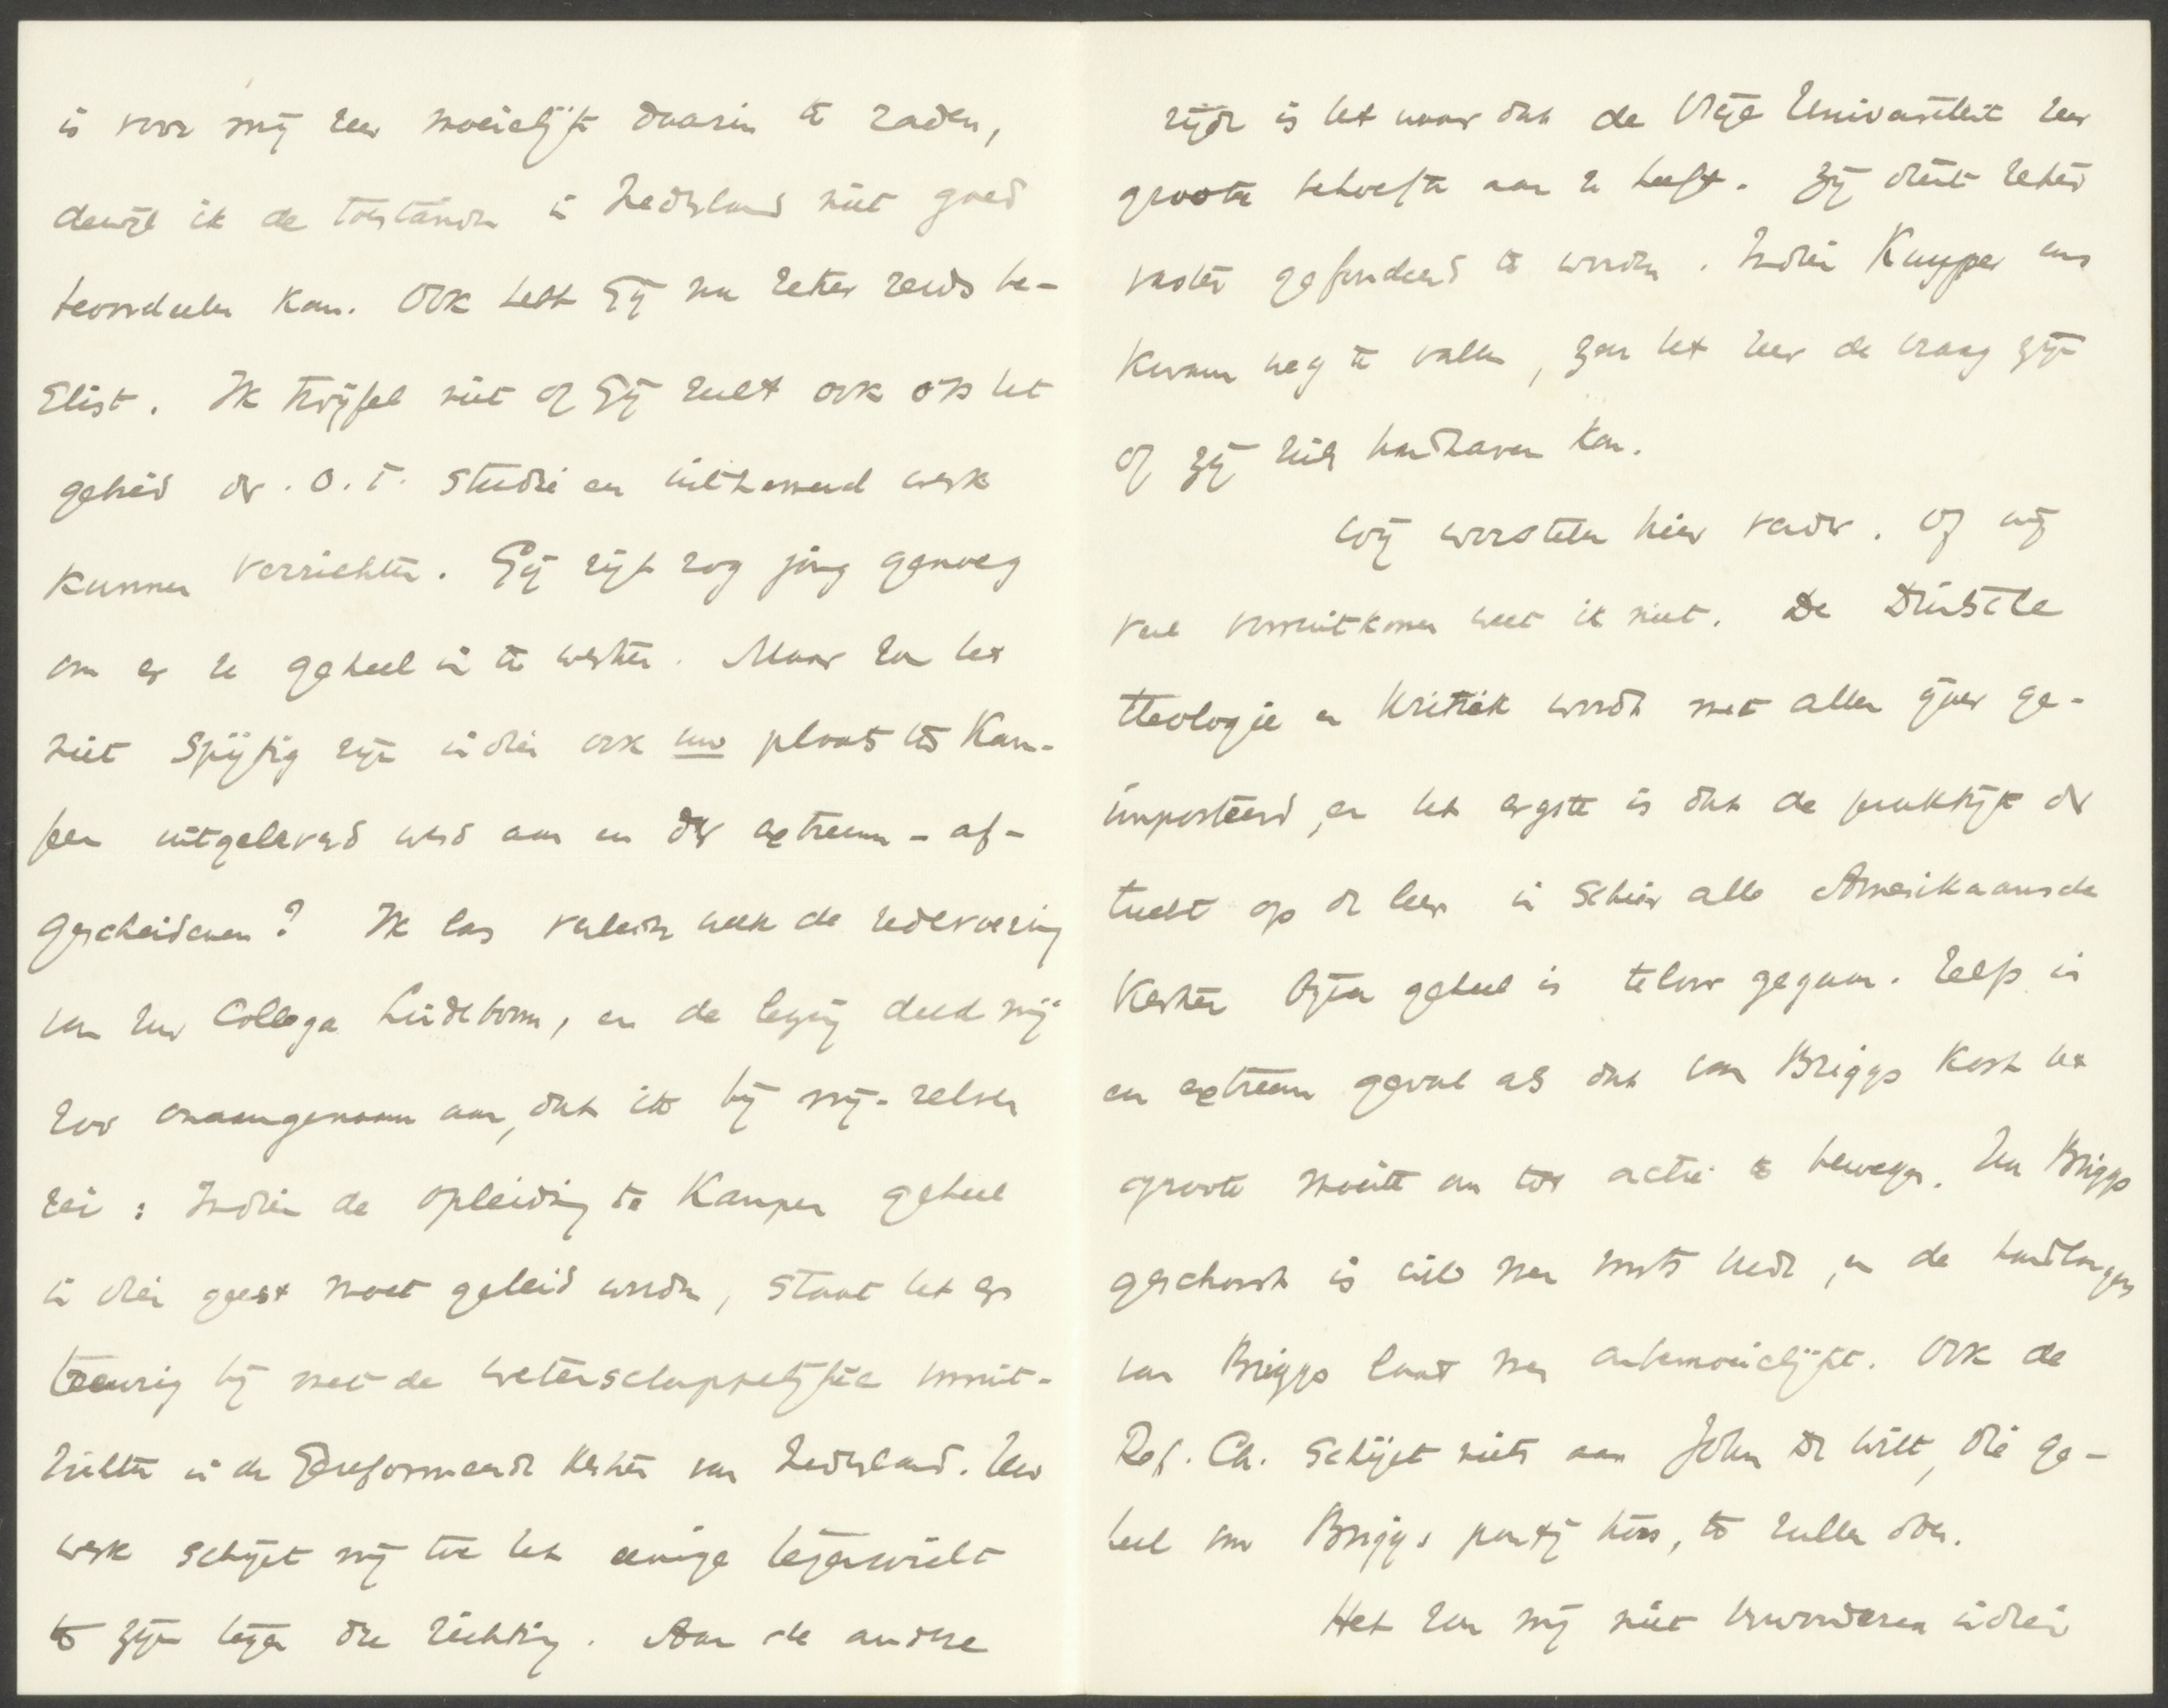 is voor mij zeer moeielijk daarin te raden,
dewijl ik de toestanden in Nederland niet goed
beoordeelen kan. Ook hebt Gij nu zeker reeds be-
slist. Ik twijfel niet of Gij zult ook op het
gebied der O.T. studie en uitnemend werk
kunnen verrichten. Gij zijt nog jong genoeg
om er U geheel in te werken. Maar zou het
niet spijtig zijn indien ook uw plaats te Kam-
pen uitgeleverd werd aan en der extreem-af-
gescheidenen? Ik las verleden week de redevoering
van Uw Collega Lindeboom, en de lezing deed mij
zoo onaangenaam aan, dat ik bij mij-zelven
zei: Indien de opleiding te Kampen geheel
in dien geest moet geleid worden, staat het er
treurig bij met de wetenschappelijke vooruit-
zichten in de Gereformeerde Kerken van Nederland. Uw
werk schijnt mij toe het eenige tegenwicht
te zijn tegen die richting. Aan de andere
zijde is het waar dat de Vrije Universiteit zeer
groote behoefte aan U heeft. Zij dient zeker
vaster gefundeerd te worden. Indien Kuyper eens
kwam weg te vallen, zou het zeer de vraag zijn
of zij zich handhaven kan.
Wij worstelen hier verder. Of wij
veel vooruitkomen weet ik niet. De Duitsche
theologie en kritiek wordt met allen ijver ge-
importeerd, en het ergste is dat de praktijk der
tucht op de leer in schier alle Amerikaansche
Kerken bijna geheel is teloor gegaan. Zelfs in
en extreem geval als dat van Briggs kost het
groote moeite om tot actie te bewegen. Nu Briggs
geschorst is wil men rust hebben, en de handlangers
van Briggs laat men onbemoeielijkt. Ook de
Ref. Ch. schijnt niets aan John De Witt, die ge-
heel van Briggs partij koos, te zullen doen.
Het zou mij niet verwonderen indien